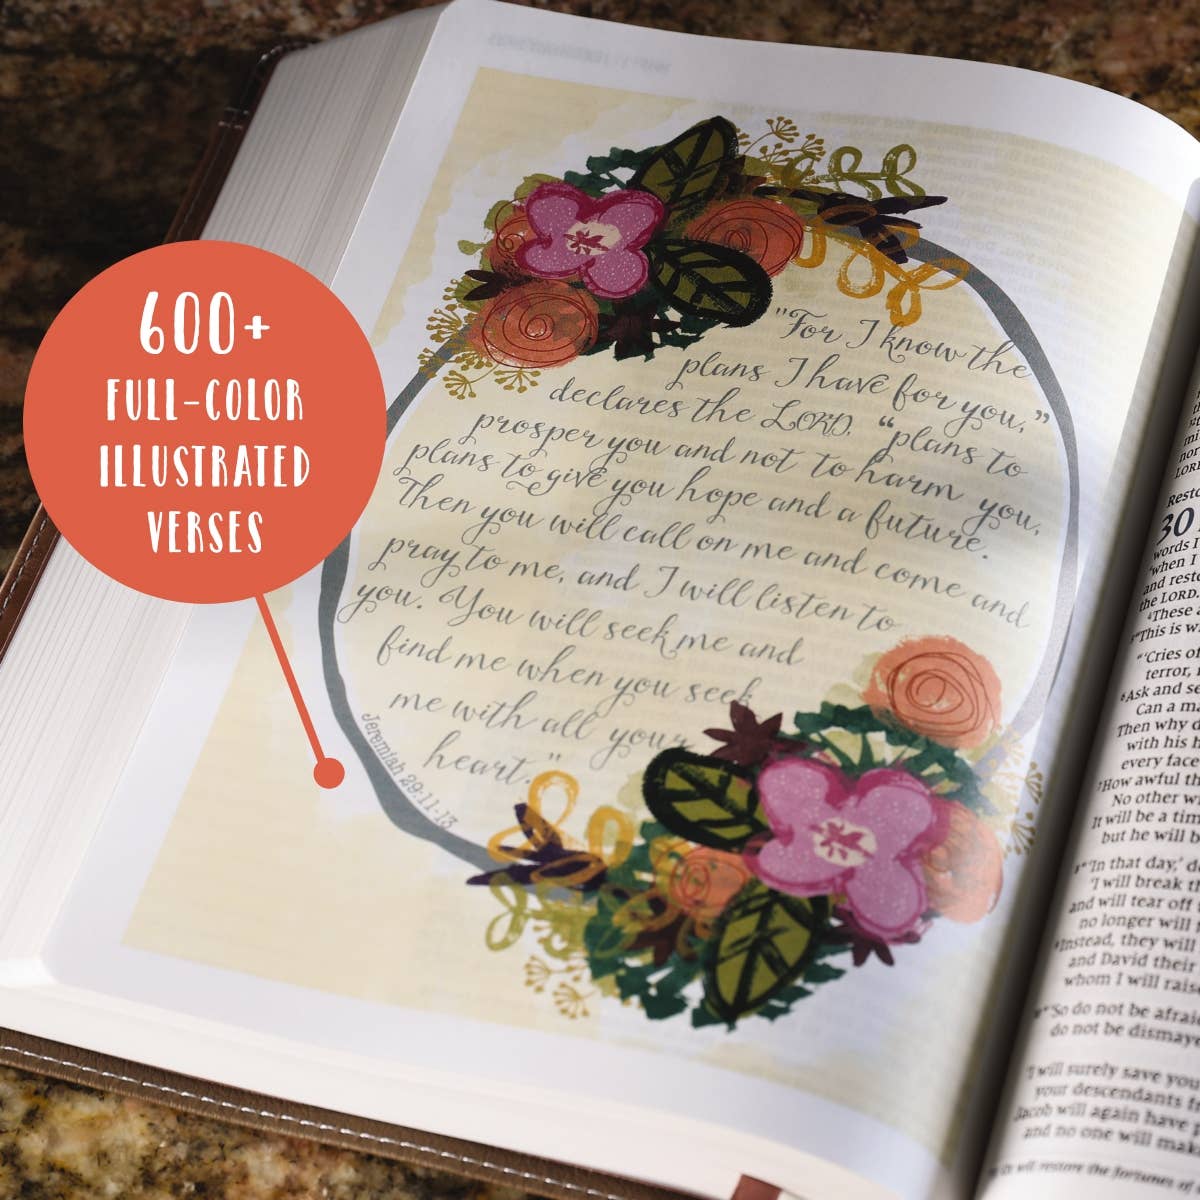 600+
FULL-COLOR
ILLUSTRATED
VERSES
"For I know the
plans I have for you,"
declares the LORD, "plans to
prosper you and not to harm you,
plans to give you hope and a future.
Then you will call on me and come and
pray to me, and I will listen to
you. You will seek me and
find me when you seek
me with all your
heart."
Jeremiah 29:11-13
30
words I
"when I
and resto
the LORD.
"These a
"This is w
"'Cries of
terror,
Ask and se
Can a ma
Then why d
with his h
every face
How awful th
No other w
It will be a tim
but he will b
"'In that day,' de
'I will break th
and will tear off
no longer will
Instead, they will
and David their
whom I will raise
"'So do not be afraid
do not be dismaye
'I will surely save you
your descendants fr
Jacob will again have
and no one will mak
will restore the fortunes of